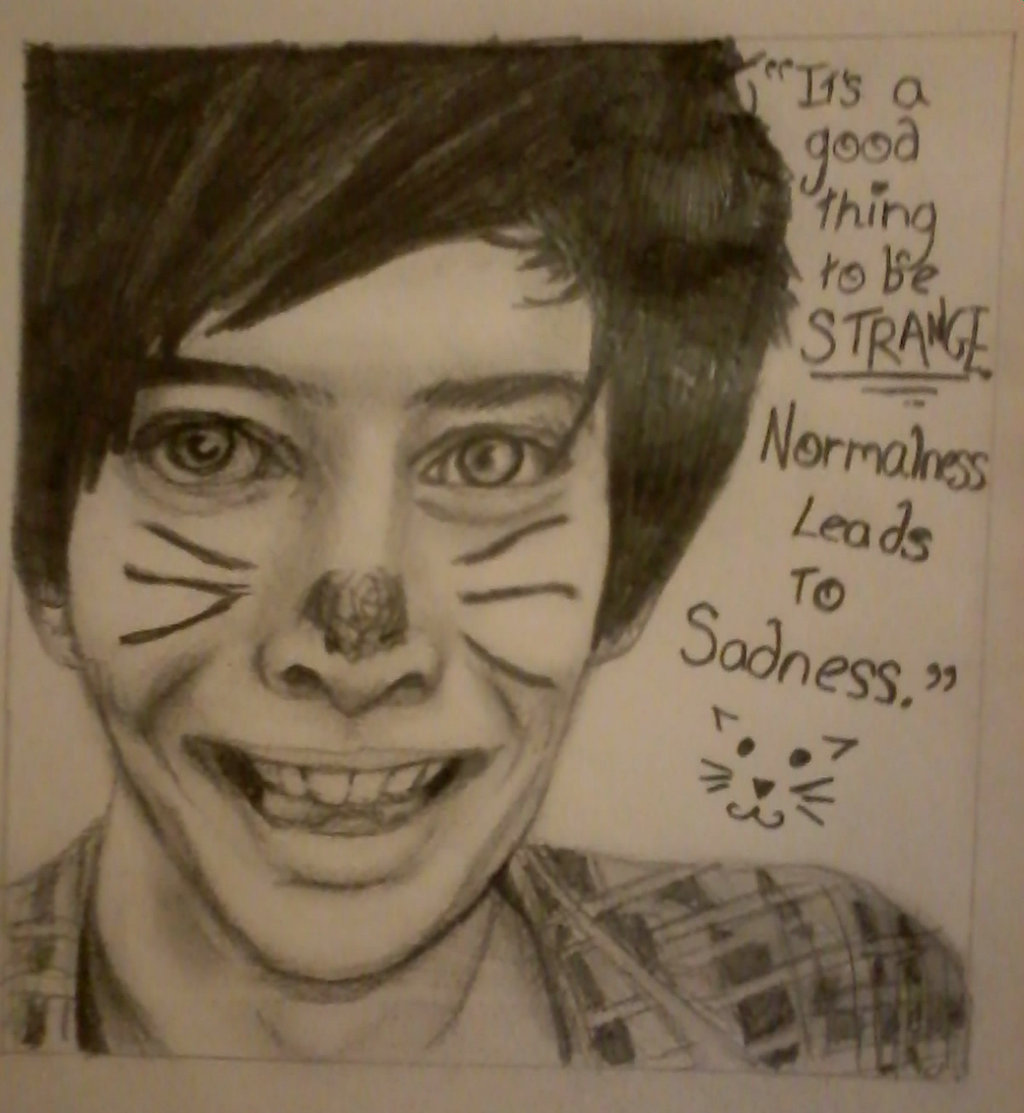 "It's a
good
thing
to be
STRANGE
Normalness
Leads
To
Sadness."